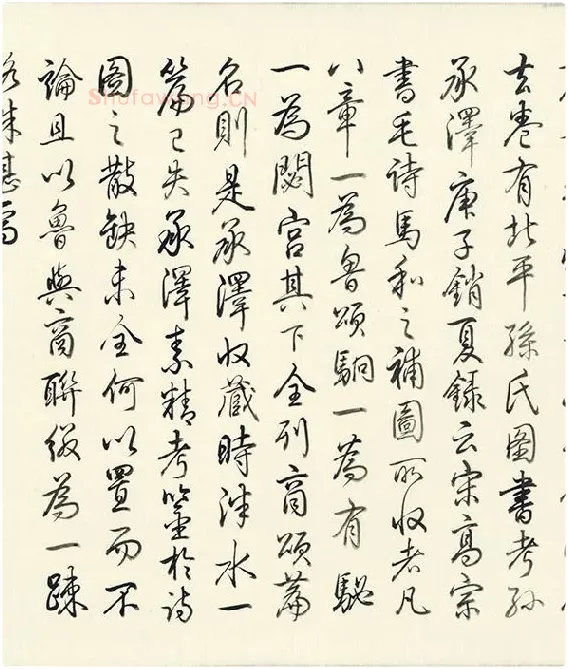 去卷有北平孫氏圖書考孫
承澤庚子銷夏錄云宋高宗
書毛詩馬和之補圖所收者凡
八章一為魯頌駉一為有駜
一為閟宮其下全列商頌篇
名則是承澤收藏時泮水一
篇已失承澤素精考鑒於詩
圖之散缺未全何以置而不
論且以魯與商聯綴為一疎
略殊甚焉
Shufawang.CN